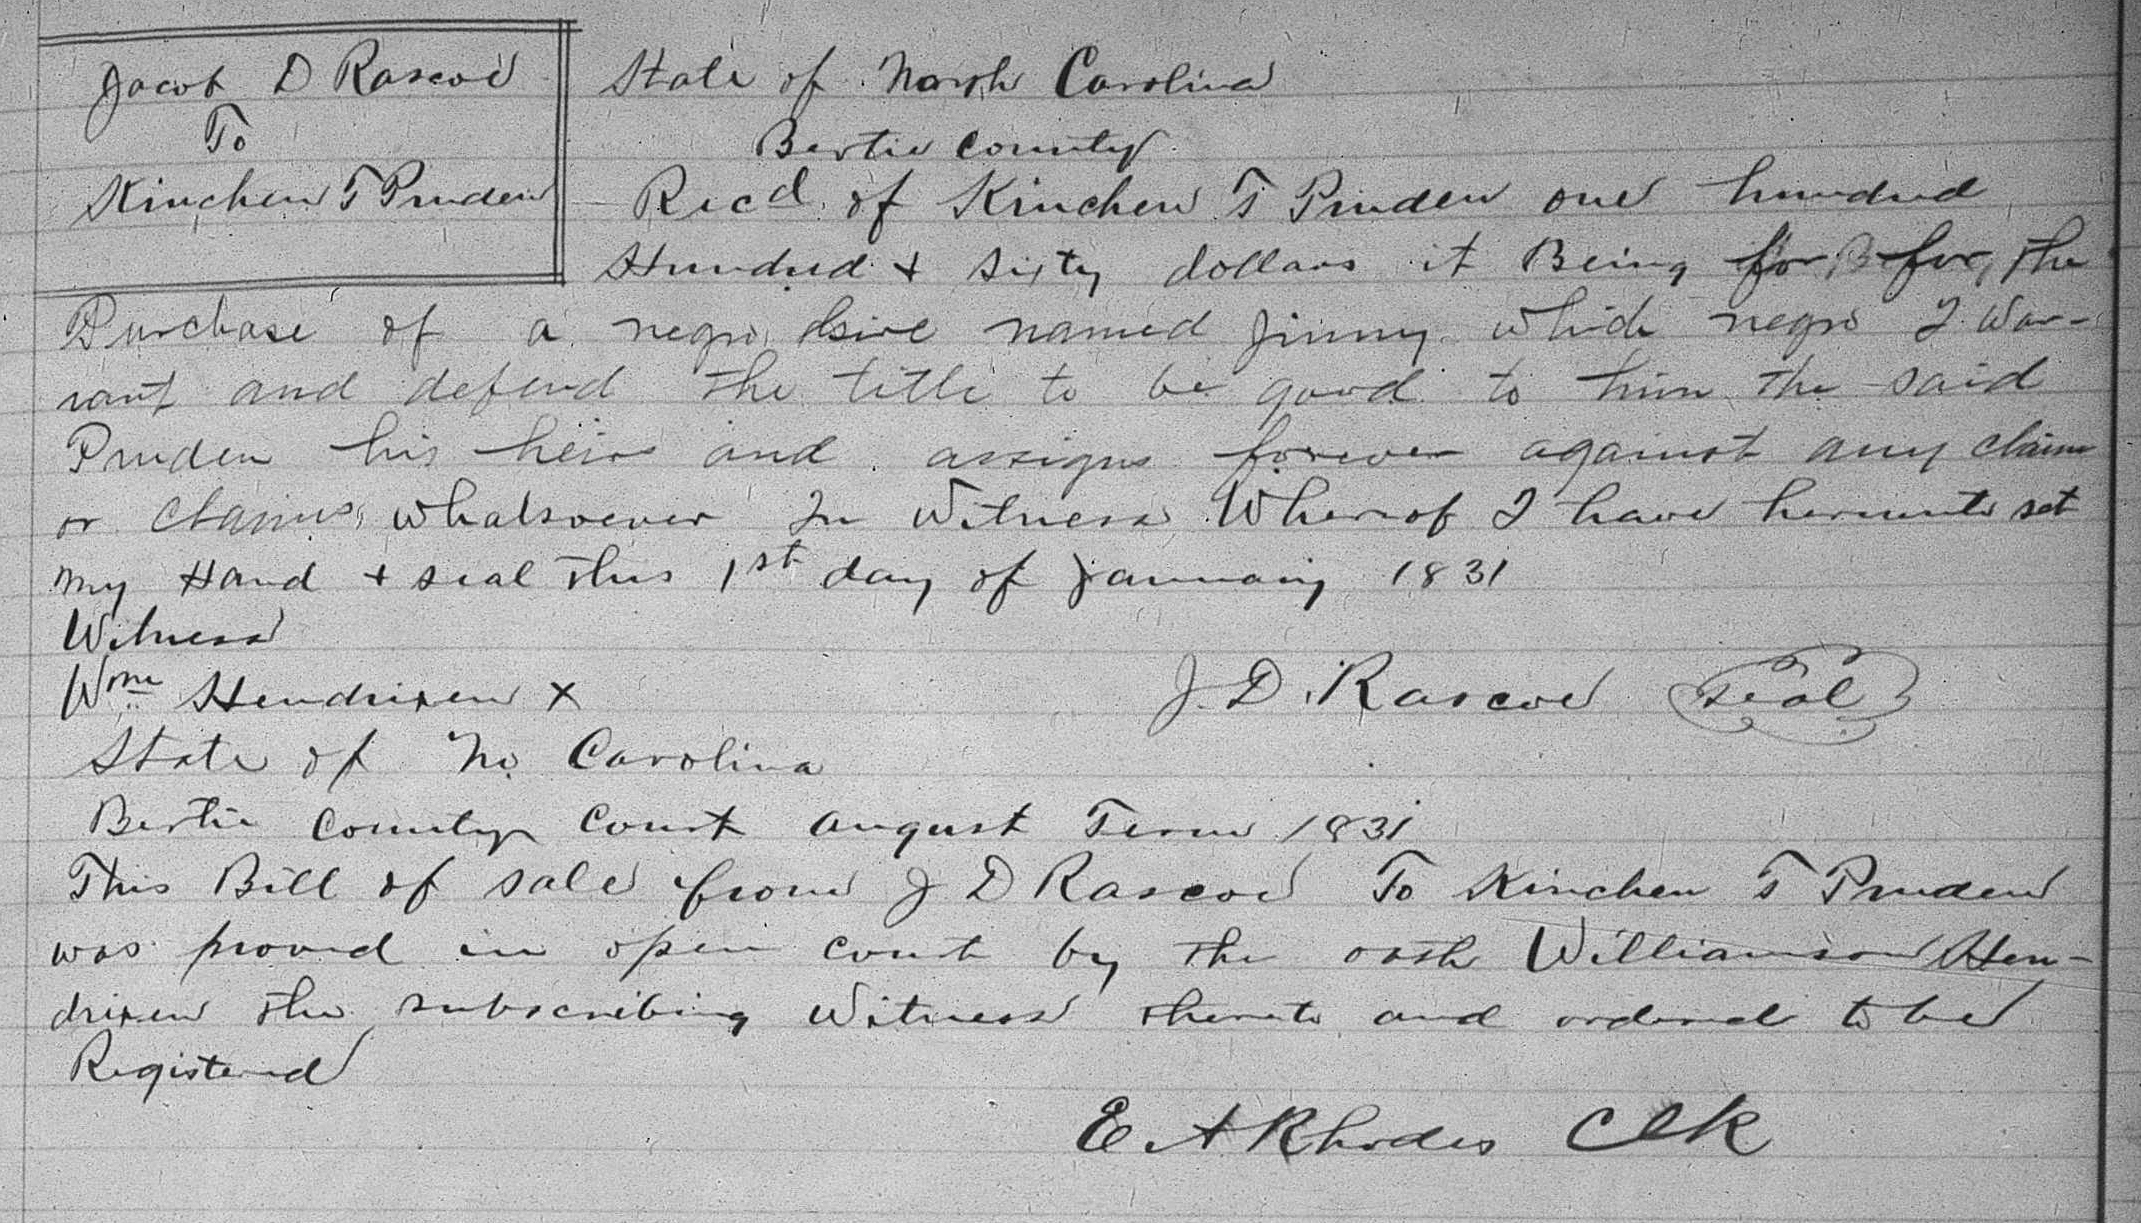 Jacob D Rascoe
To
Kinchen T Pruden
State of North Carolina
Bertie County
Recd of Kinchen T Pruden one hundred
Hundred & sixty dollars it Being for the
Purchase of a negro named Jinny which negro I War-
rant and defend the title to be good to him the said
Pruden his heirs and assigns forever against any claim
or claims whatsoever In Witness Whereof I have hereunto set
my Hand & seal this 1st day of January 1831
Witness
Wm Hendrixen X
J. D. Rascoe Seal
State of No Carolina
Bertie County Court august Term 1831
This Bill of sale from J D Rascoe To Kinchen T Pruden
was proved in open court by the oath Williamson Hen-
drixen the subscribing Witness thereto and ordered to be
Registered
E A Rhodes Clk